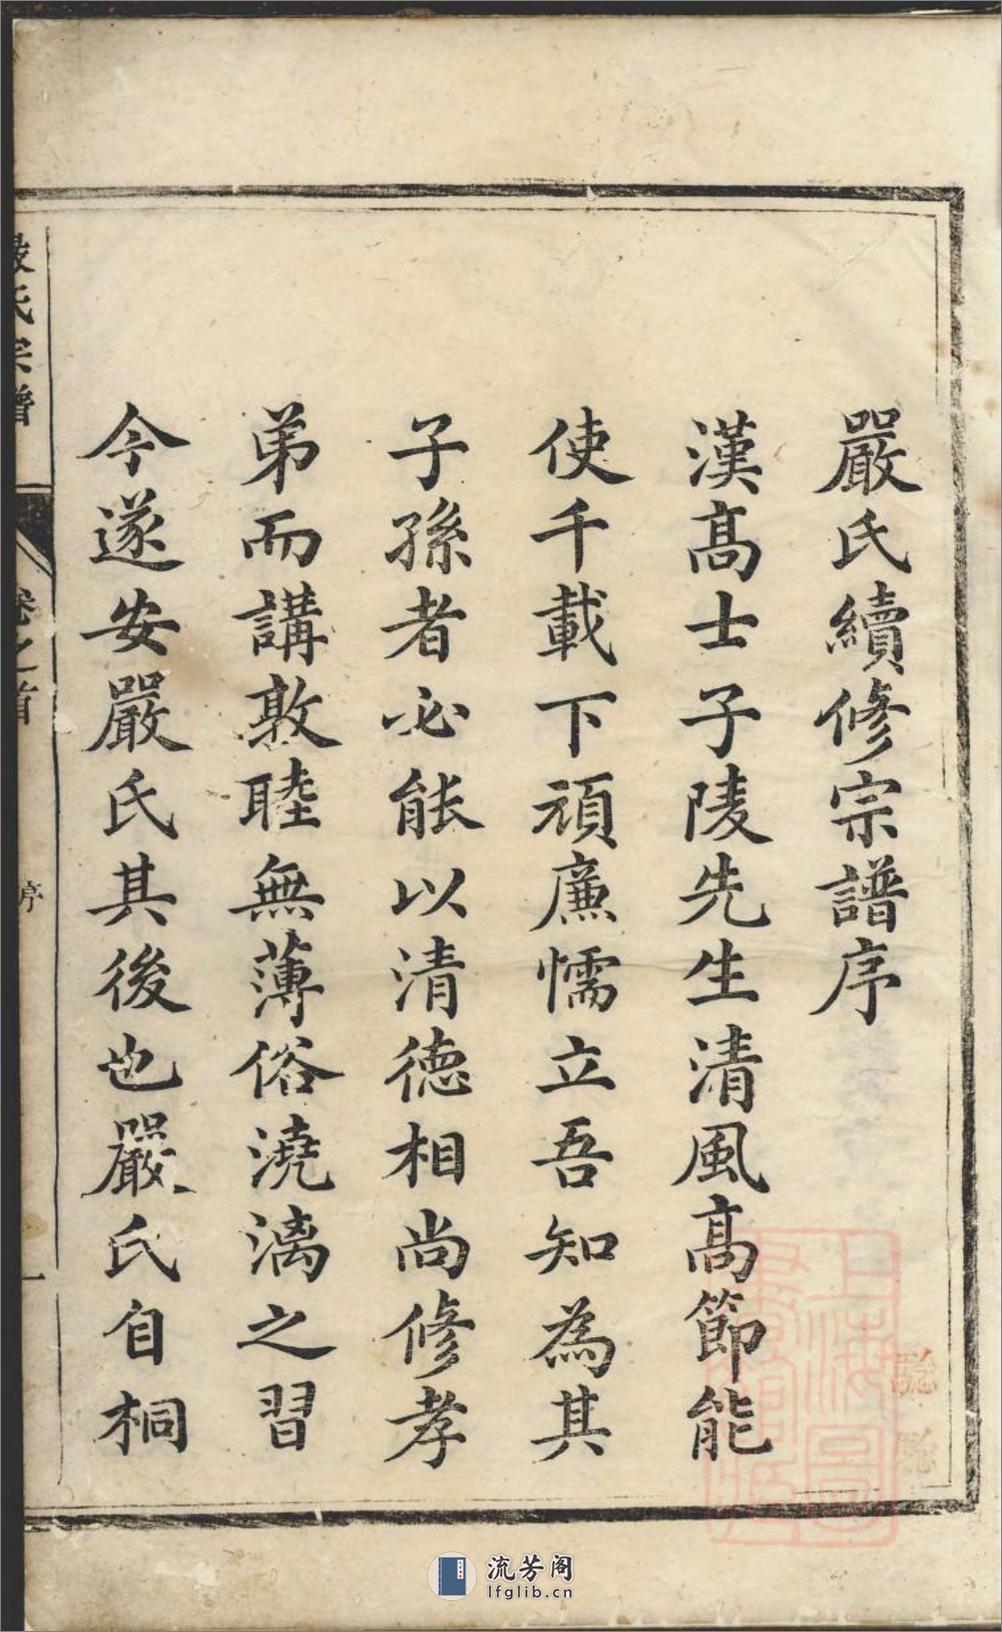 嚴氏續修宗譜序
漢高士子陵先生清風高節能
使千載下頑廉懦立吾知為其
子孫者必能以清德相尚修孝
弟而講敦睦無薄俗澆漓之習
今遂安嚴氏其後也嚴氏自桐
嚴氏宗譜
卷之首
序
一
流芳阁
lfglib.cn